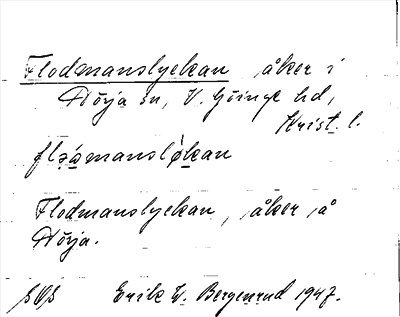 Flodmanslyckan, åker i
Nörja sn, V. Göinge hd,
Krist. l.
flǝómanslǿkan
Flodmanslyckan, åker å
Nörja.
SOS Erik W. Bergenrud 1947.